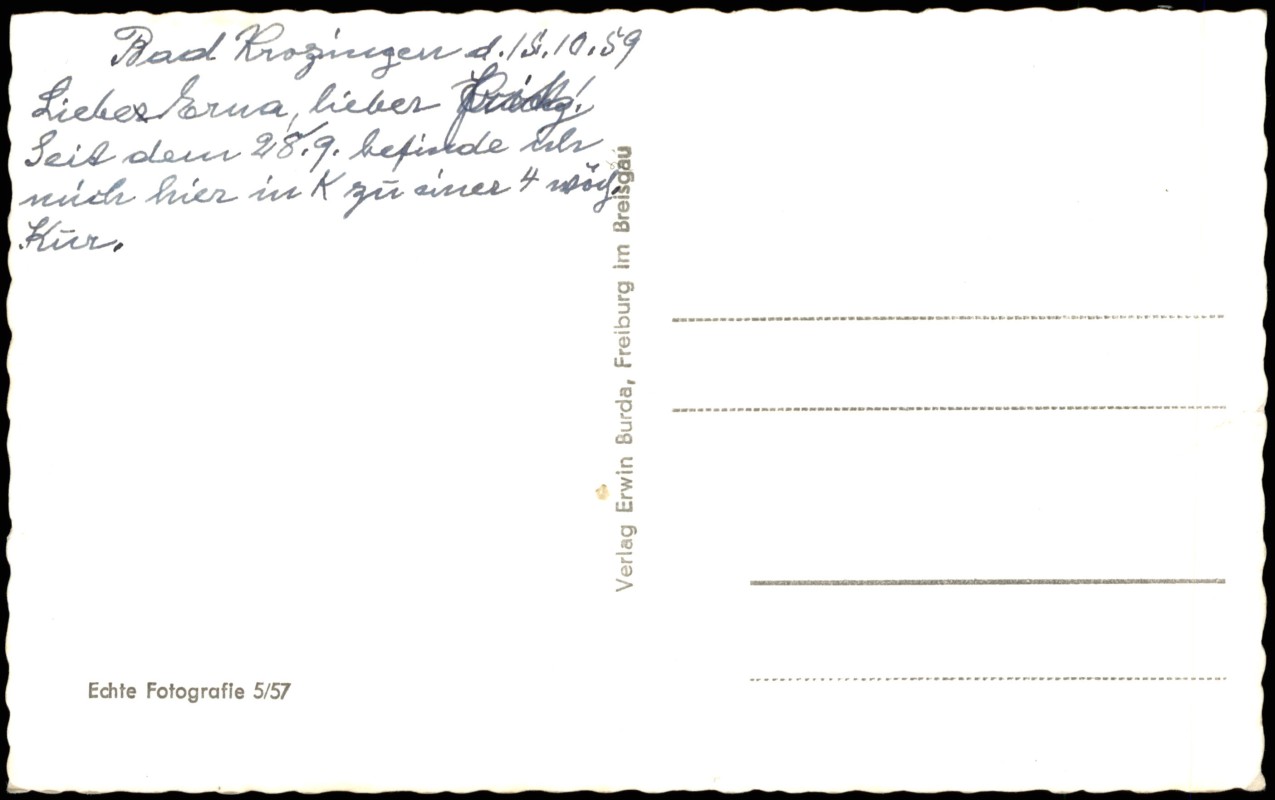 Bad Krozingen d. 15.10.59
Liebe Erna, lieber
Seit dem 28.9. befinde ich
mich hier in K zu einer 4 wöch.
Kur.
Verlag Erwin Burda, Freiburg im Breisgau
Echte Fotografie 5/57